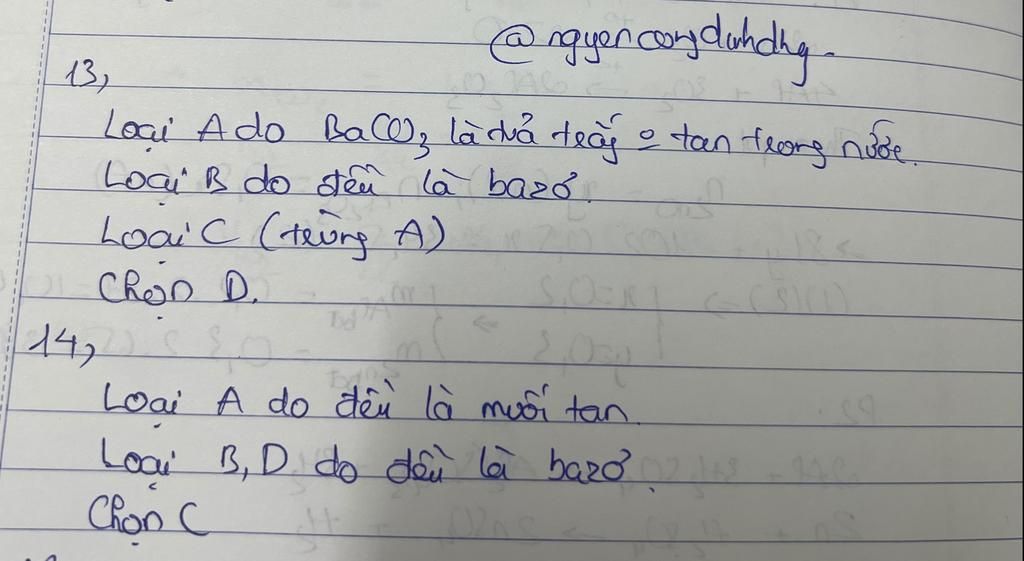 @nguyencongduhdhg.
13,
Loại A do BaCO3 là tủa trắng o tan trong nước.
Loại B do đều là bazơ.
Loại C (trùng A)
Chọn D.
14,
Loại A do đều là muối tan.
Loại B, D do đều là bazơ.
Chọn C